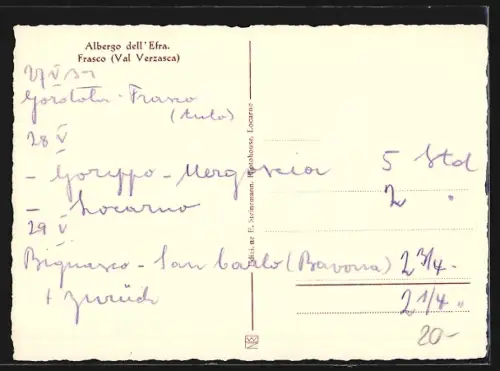 Albergo dell'Efra.
Frasco (Val Verzasca)
27 V
Frasco
(Auto)
28 V
- Gorippo - Mergoscia 5 Std
- Locarno 2 "
29 V
Bignasco - San Carlo (Bavona) 2 3/4 "
+ zurück 2 1/4 "
20-
E. Steinemann, Locarno